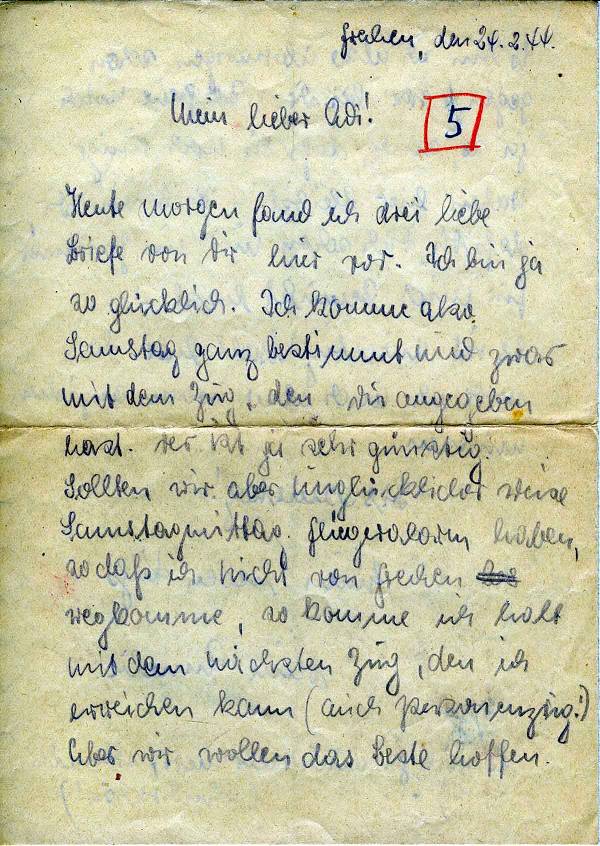 Frechen, den 24.2.44.
Mein lieber Adi!
5
Heute morgen fand ich drei liebe
Briefe von Dir hier vor. Ich bin ja
so glücklich. Ich komme also
Samstag ganz bestimmt und zwar
mit dem Zug, den Du angegeben
hast. Der ist ja sehr günstig
Sollten wir aber unglücklicher weise
Samstagmittag Fliegeralarm haben,
sodaß ich nicht von Frechen
wegkomme, so komme ich halt
mit dem nächsten Zug, den ich
erreichen kann (auch Personenzug!)
Aber wir wollen das Beste hoffen.